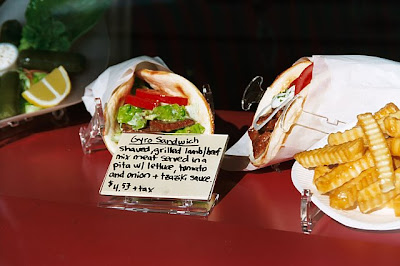 Gyro Sandwich
shaved, grilled lamb/beef
mix meat served in a
pita w/ lettuce, tomato
and onion + tzaziki sauce.
$4.53 + tax